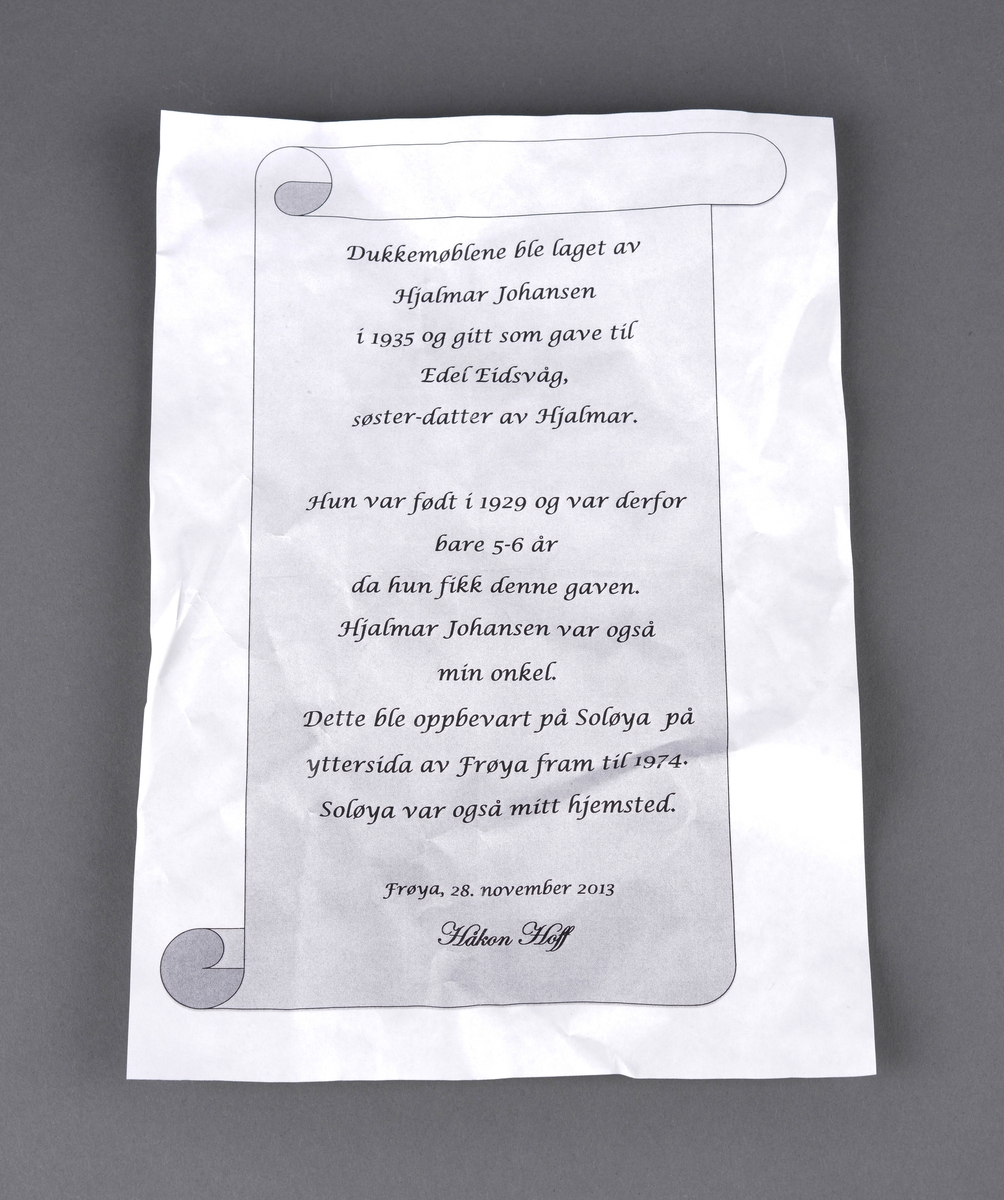 Dukkemøblene ble laget av
Hjalmar Johansen
i 1935 og gitt som gave til
Edel Eidsvåg,
søster-datter av Hjalmar.
Hun var født i 1929 og var derfor
bare 5-6 år
da hun fikk denne gaven.
Hjalmar Johansen var også
min onkel.
Dette ble oppbevart på Soløya på
yttersida av Frøya fram til 1974.
Soløya var også mitt hjemsted.
Frøya, 28. november 2013
Håkon Hoff